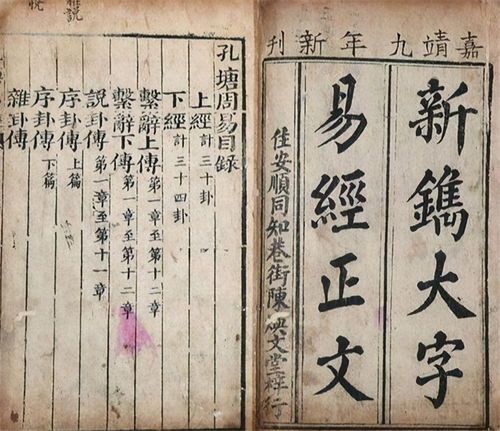 嘉靖九年新刊
新鐫大字
易經正文
佳安順同知巷街陳文堂梓行
孔塘周易目錄
上經 計三十卦
下經 計三十四卦
繫辭上傳 第一章至第十二章
繫辭下傳 第一章至第十二章
說卦傳 第一章至第十一章
序卦傳 上篇
序卦傳 下篇
雜卦傳